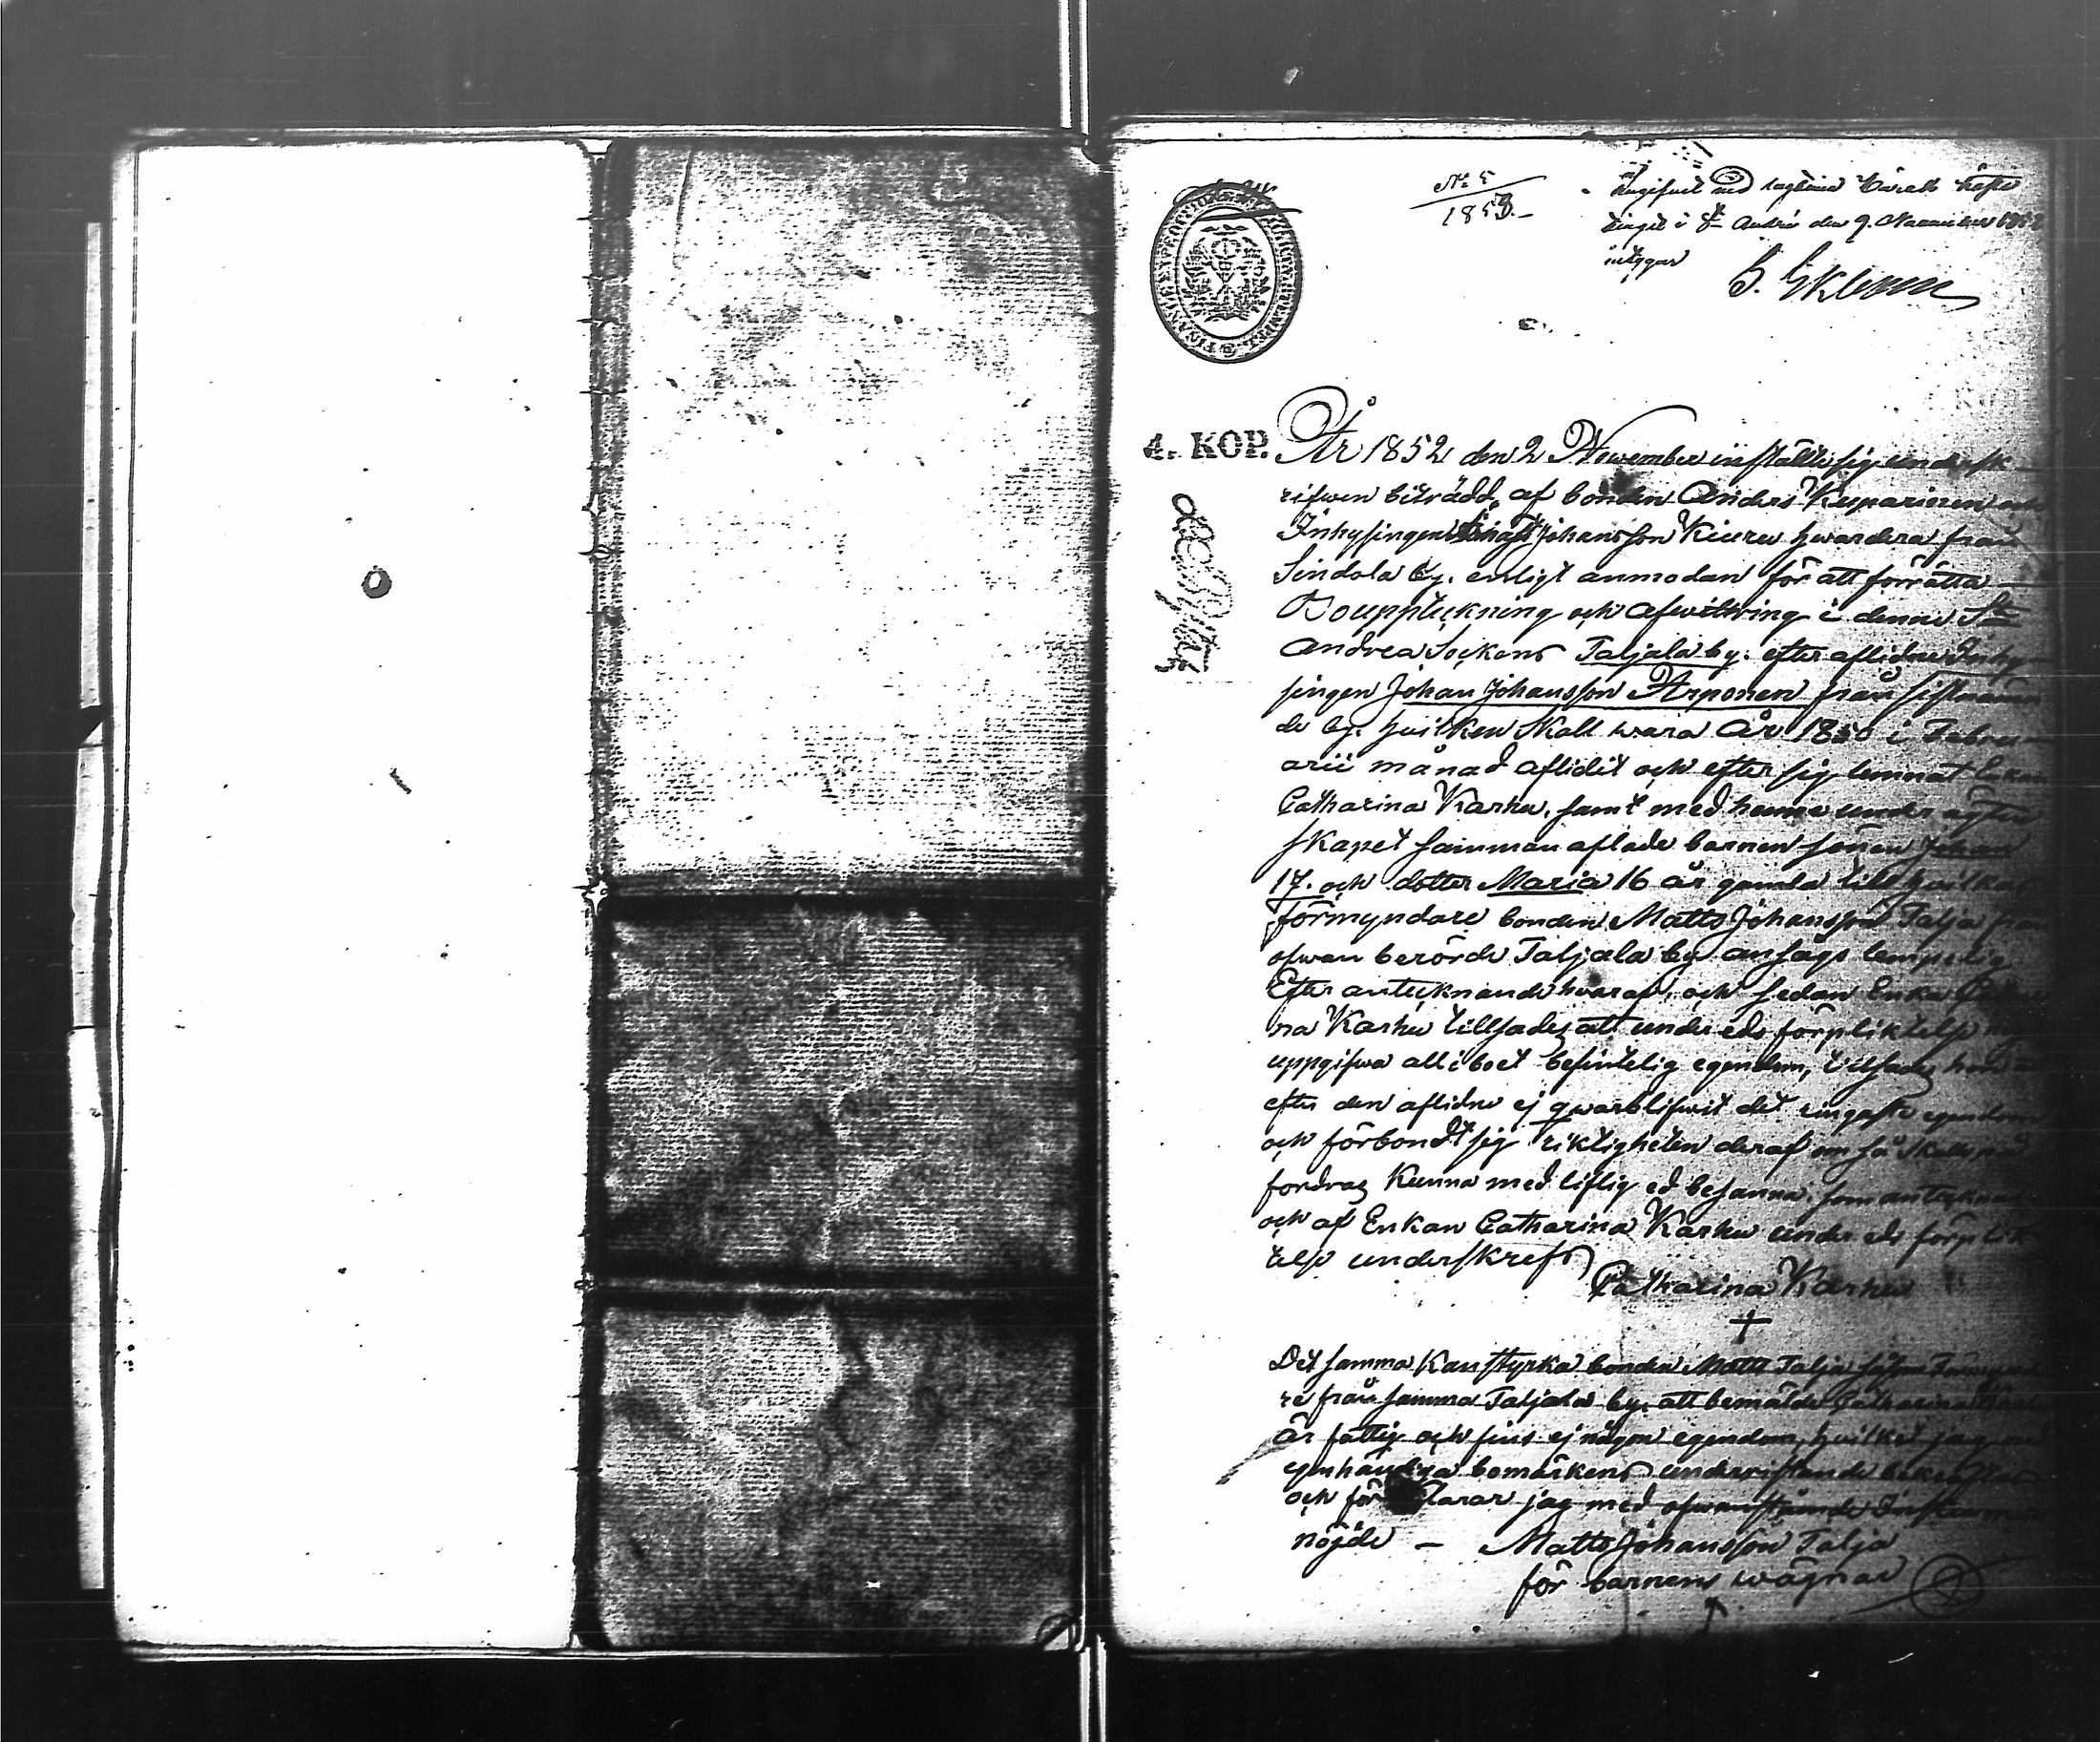 N: 5
1853.
Ingifvet vid lagtima
tinget i S:t André den 9. November 1852
intygar
4. KOP.
År 1852 den 2 November inställte sig undersk-
rifwen biträdd af bonden Anders Kuparinen och
Inhysingen Johansson Kiuru hwardera från
Sindola by. enligt anmodan för att förrätta
Bouppteckning och afwittring i denne S:t
Andrea Sockens Taljala by. efter aflidne Inhy-
singen Johan Johansson Arponen från sistnämn
de by. hvilken skall wara År 1850 i Febru-
arii månad aflidit och efter sig lemnat Enkan
Catharina Karhu, samt med henne under ägten
skapet sammanaflade barnen sonen Johan
17. och dotter Maria 16 år gamla till hvilka
förmyndare bonden Matts Johansson Talja från
ofwan berörde Taljala by ansågs lempelig
Efter antecknande hvaraf, och sedan Enka Catha
na Karhu tillsades att under eds förpliktelse
uppgifwa all i boet befintelig egendom, tillsade hon
efter den aflidne ej qwarblifwit det ringaste egendom
och förbondt sig riktigheten deraf om så skall på
fordras kunna med liflig ed besanna, som antecknas
och af Enkan Catharina Karhu under eds förplik
telse underskrefs
Catharina Karhu
+
Det samma kan styrka bonden Matts Talja
re från samma Taljala by, att bemälde Catharina
är fattig och fins ej någon egendom, hvilket jag med
egenhändiga bomärkens underristande
och förklarar jag med ofwanstående
nöjde — Matts Johansson Talja
för barnens wägnar